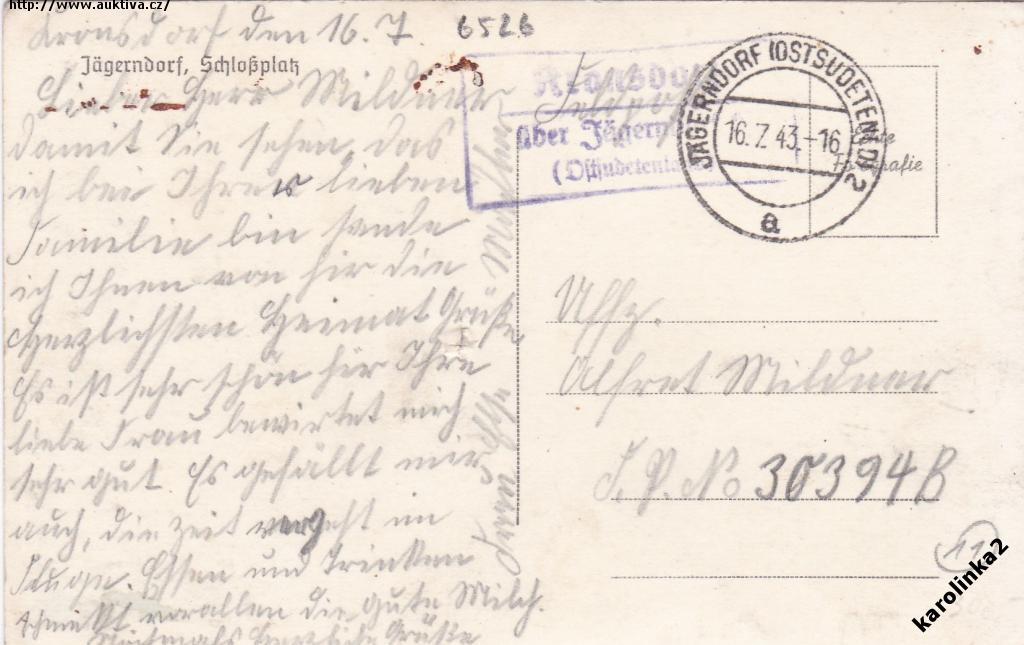 http://www.auktiva.cz/
Kronsdorf den 16. 7
6526
Jägerndorf, Schloßplatz
Lieber Herr Mildner
damit Sie sehen, das
ich bei Ihrer lieben
Familie bin sende
ich Ihnen von hir die
Herzlichsten Heimat Grüße
Es ist sehr schön hir Ihre
liebe Frau bewirtet mich
sehr gut Es gefällt mir
auch, die Zeit vergeht im
Fluge. Essen und trinken
schmekt vorallen die gute Milch.
Nochmals herzliche Grüße
Feldpost
Kronsdo
über Jägern
(Ostsudetenla
JÄGERNDORF (OSTSUDETENLD) 2
16.7.43.-16
a
Uffz.
Alfret Mildner
F. P. No 30394B
11
karolinka2